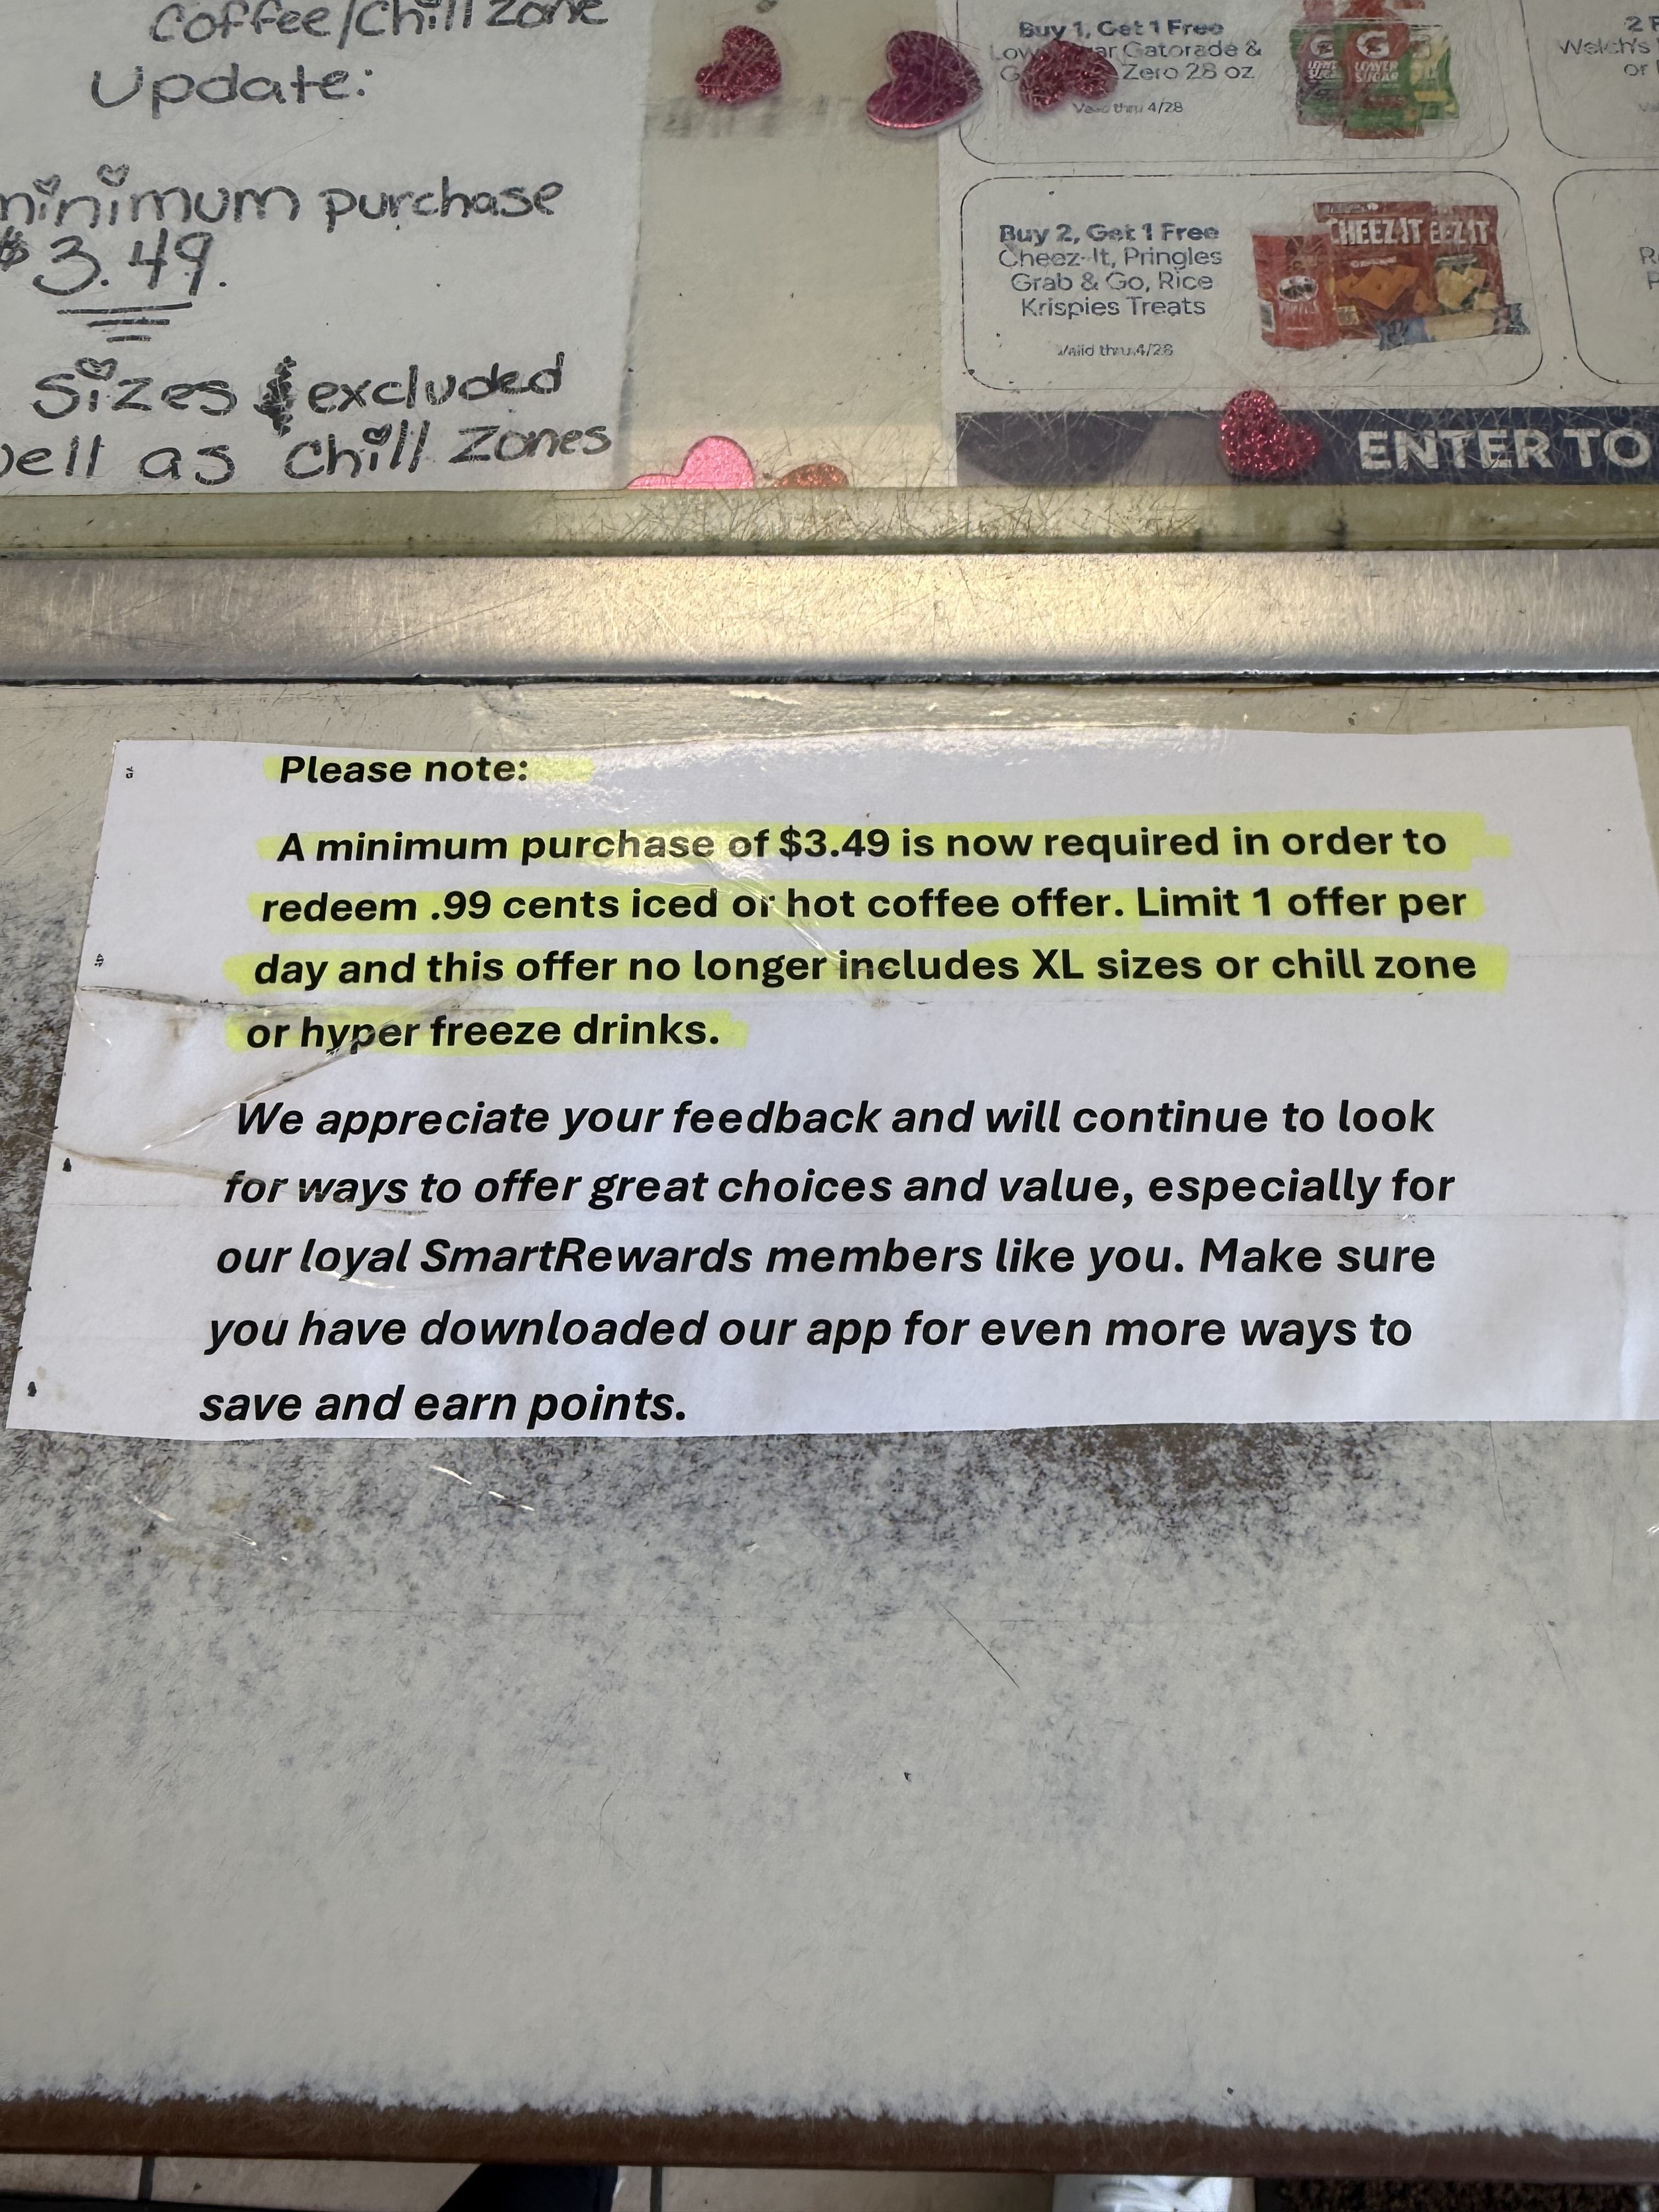 Coffee/Chill Zone
Update:
minimum purchase
$3.49.
Sizes excluded
as Chill Zones
Buy 1, Get 1 Free
Gatorade &
Zero 28 oz
Valid thru 4/28
LOWER
SUGAR
Buy 2, Get 1 Free
Cheez-It, Pringles
Grab & Go, Rice
Krispies Treats
Valid thru 4/28
CHEEZ-IT
Welch's
or
ENTER TO
Please note:
A minimum purchase of $3.49 is now required in order to
redeem .99 cents iced or hot coffee offer. Limit 1 offer per
day and this offer no longer includes XL sizes or chill zone
or hyper freeze drinks.
We appreciate your feedback and will continue to look
for ways to offer great choices and value, especially for
our loyal SmartRewards members like you. Make sure
you have downloaded our app for even more ways to
save and earn points.